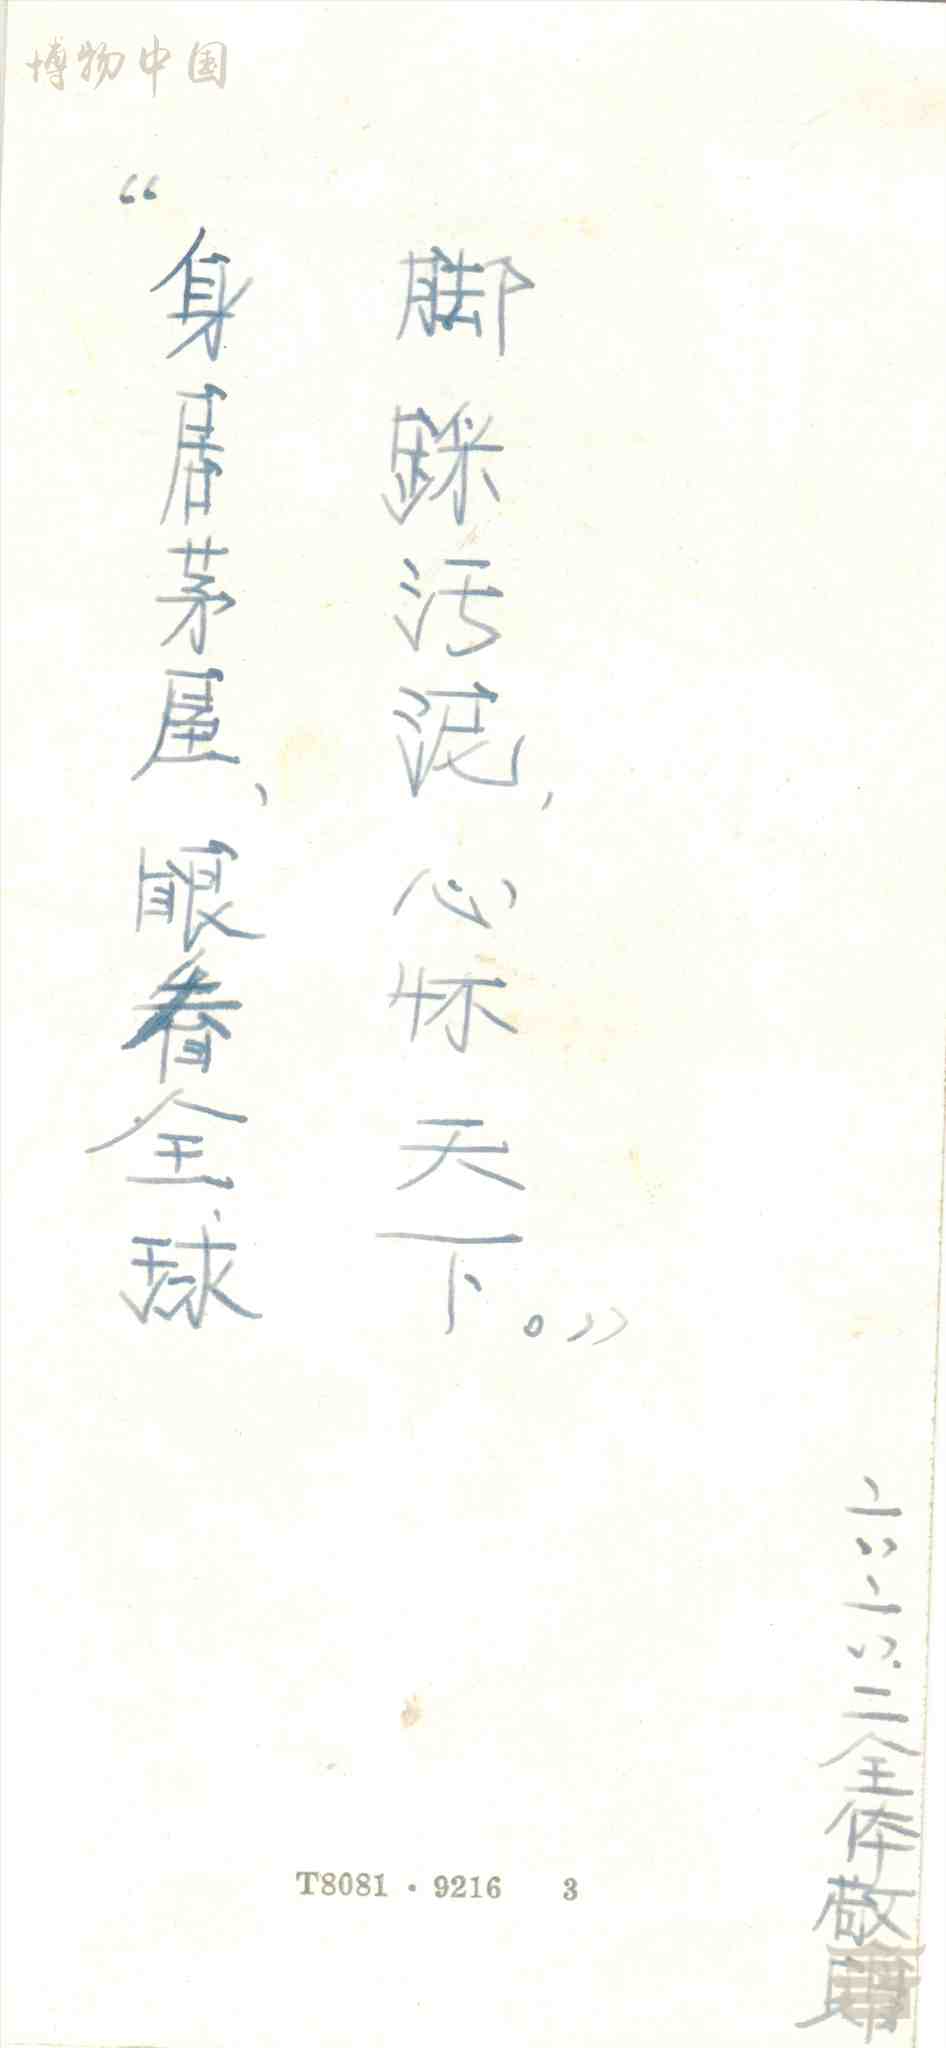 博物中国
“身居茅屋、眼看全球
脚踩污泥,心怀天下。”
六六.二全体敬赠
T8081·9216 3